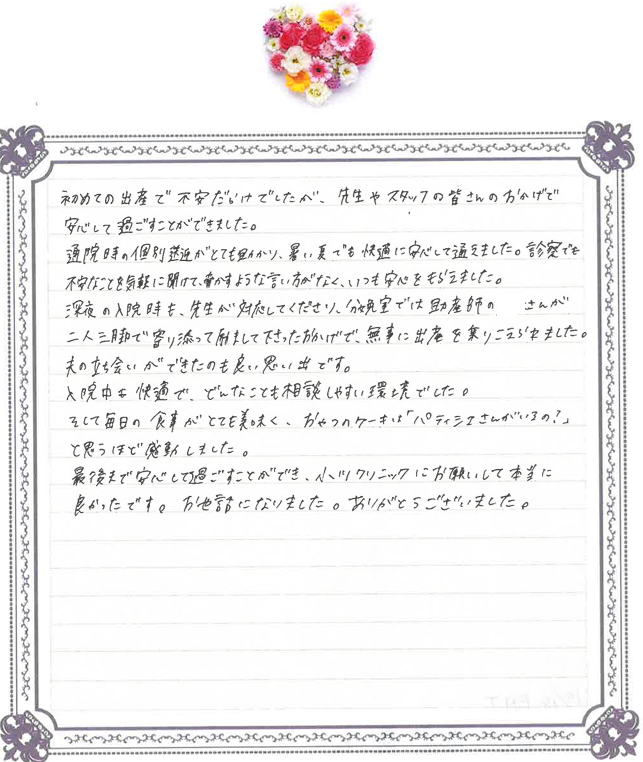 初めての出産で不安だらけでしたが、先生やスタッフの皆さんのおかげで
安心して過ごすことができました。
通院時の個別送迎がとても助かり、暑い夏でも快適に安心して通えました。診察でも
不安なことを気軽に聞けて、脅かすような言い方がなく、いつも安心をもらえました。
深夜の入院時も、先生が対応してくださり、分娩室では助産師の さんが
二人三脚で寄り添って励まして下さったおかげで、無事に出産を乗りこえられました。
夫の立ち会いができたのも良い思い出です。
入院中も快適で、どんなことも相談しやすい環境でした。
そして毎日の食事がとても美味く、おやつのケーキは「パティシエさんがいるの?」
と思うほど感動しました。
最後まで安心して過ごすことができ、小川クリニックにお願いして本当に
良かったです。お世話になりました。ありがとうございました。